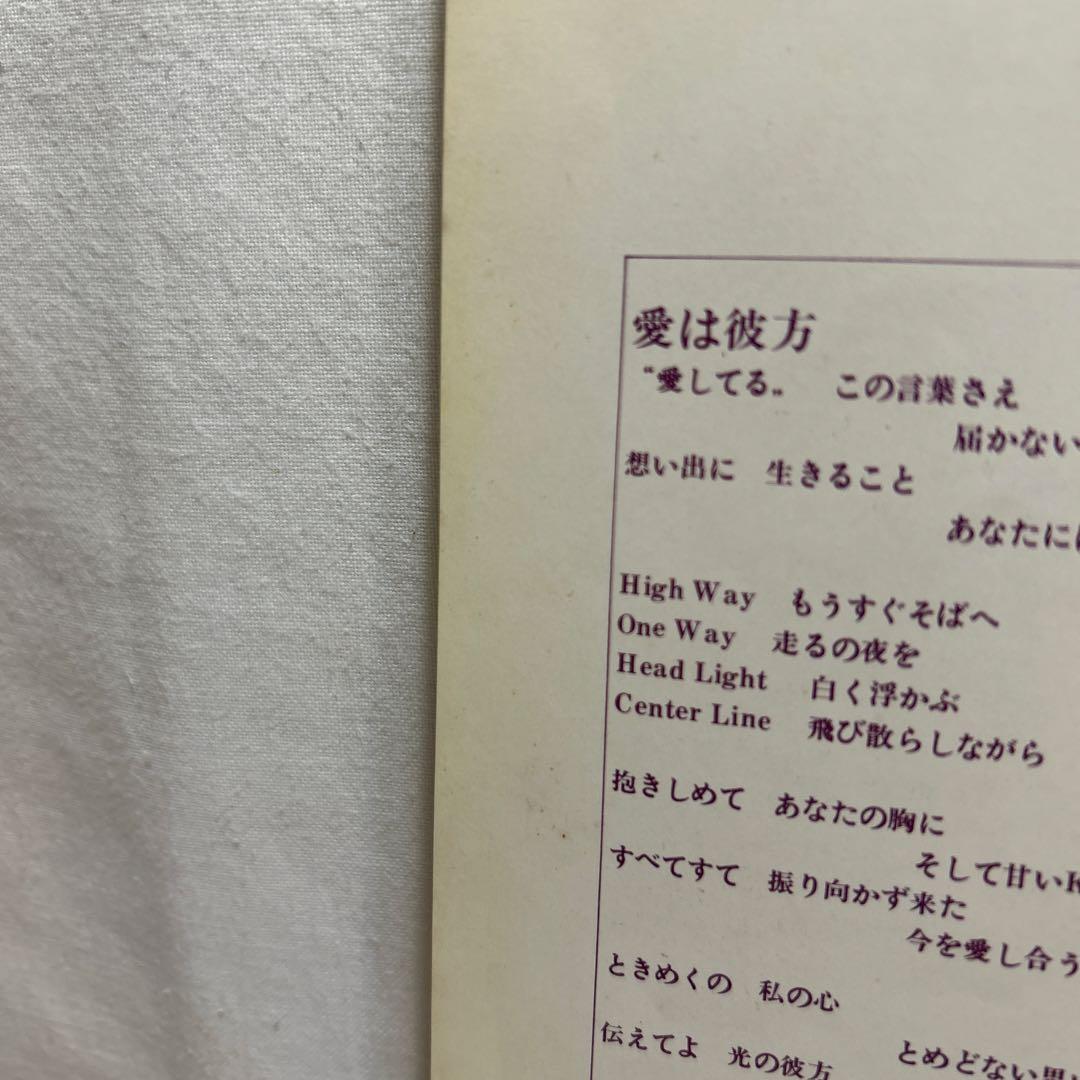 愛は彼方
“愛してる„　この言葉さえ
届かない
想い出に　生きること
あなたに
High Way　もうすぐそばへ
One Way　走るの夜を
Head Light　白く浮かぶ
Center Line　飛び散らしながら
抱きしめて　あなたの胸に
そして甘い
すべてすて　振り向かず来た
今を愛し合う
ときめくの　私の心
とめどない
伝えてよ　光の彼方